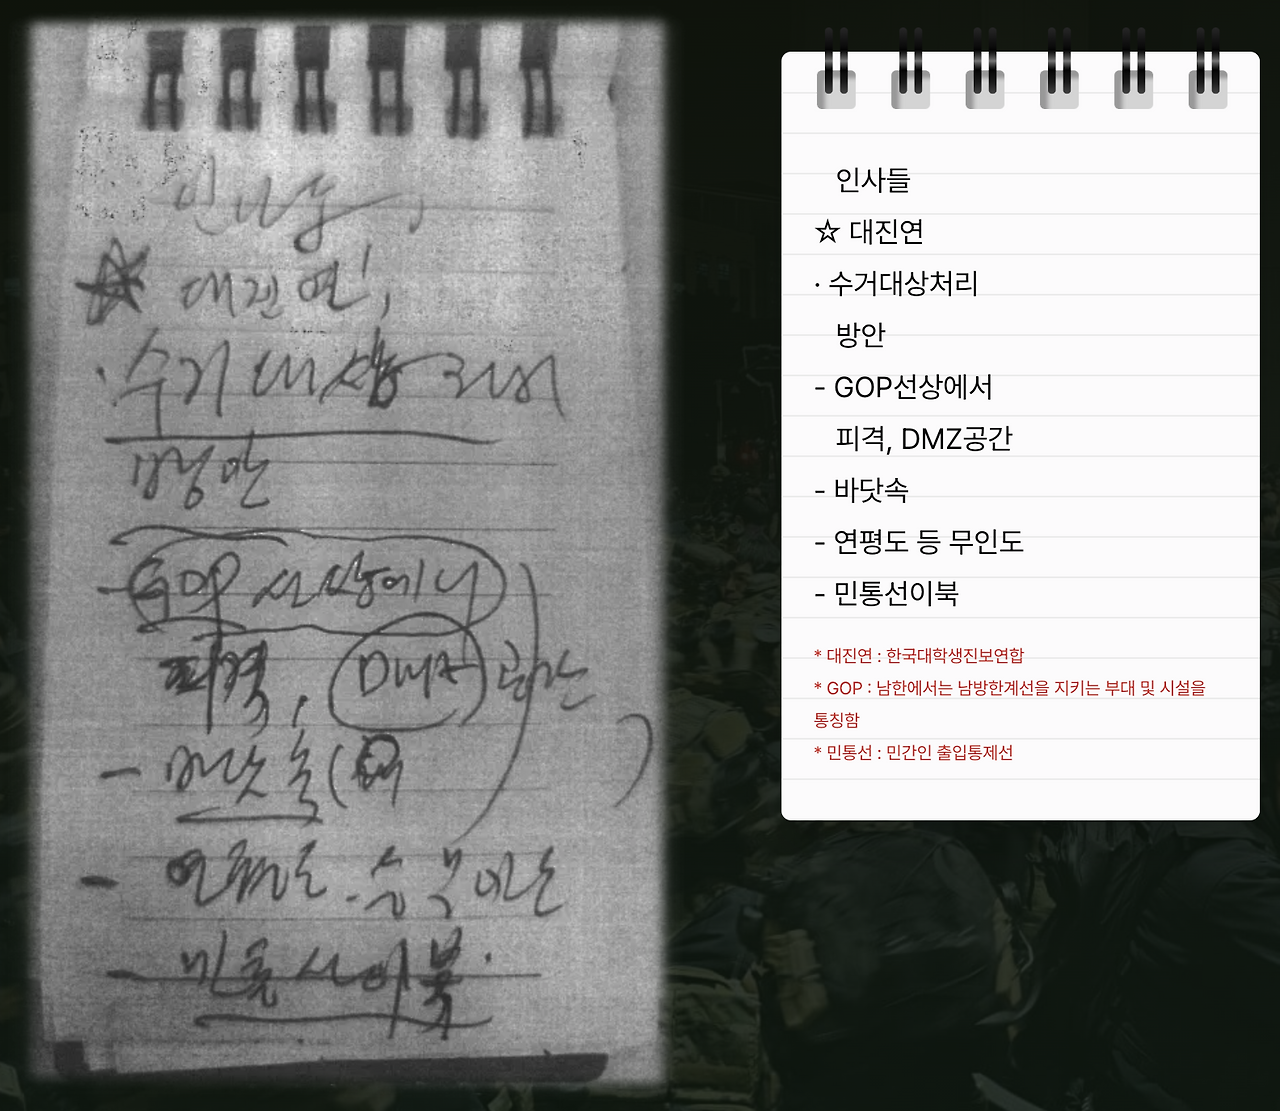 인사들,
☆ 대진연,
· 수거대상처리
방안
- GOP 선상에서
피격, DMZ 공간
- 바닷속(
- 연평도 등 무인도
- 민통선이북.
인사들
☆ 대진연
· 수거대상처리
방안
- GOP선상에서
피격, DMZ공간
- 바닷속
- 연평도 등 무인도
- 민통선이북
* 대진연 : 한국대학생진보연합
* GOP : 남한에서는 남방한계선을 지키는 부대 및 시설을
통칭함
* 민통선 : 민간인 출입통제선